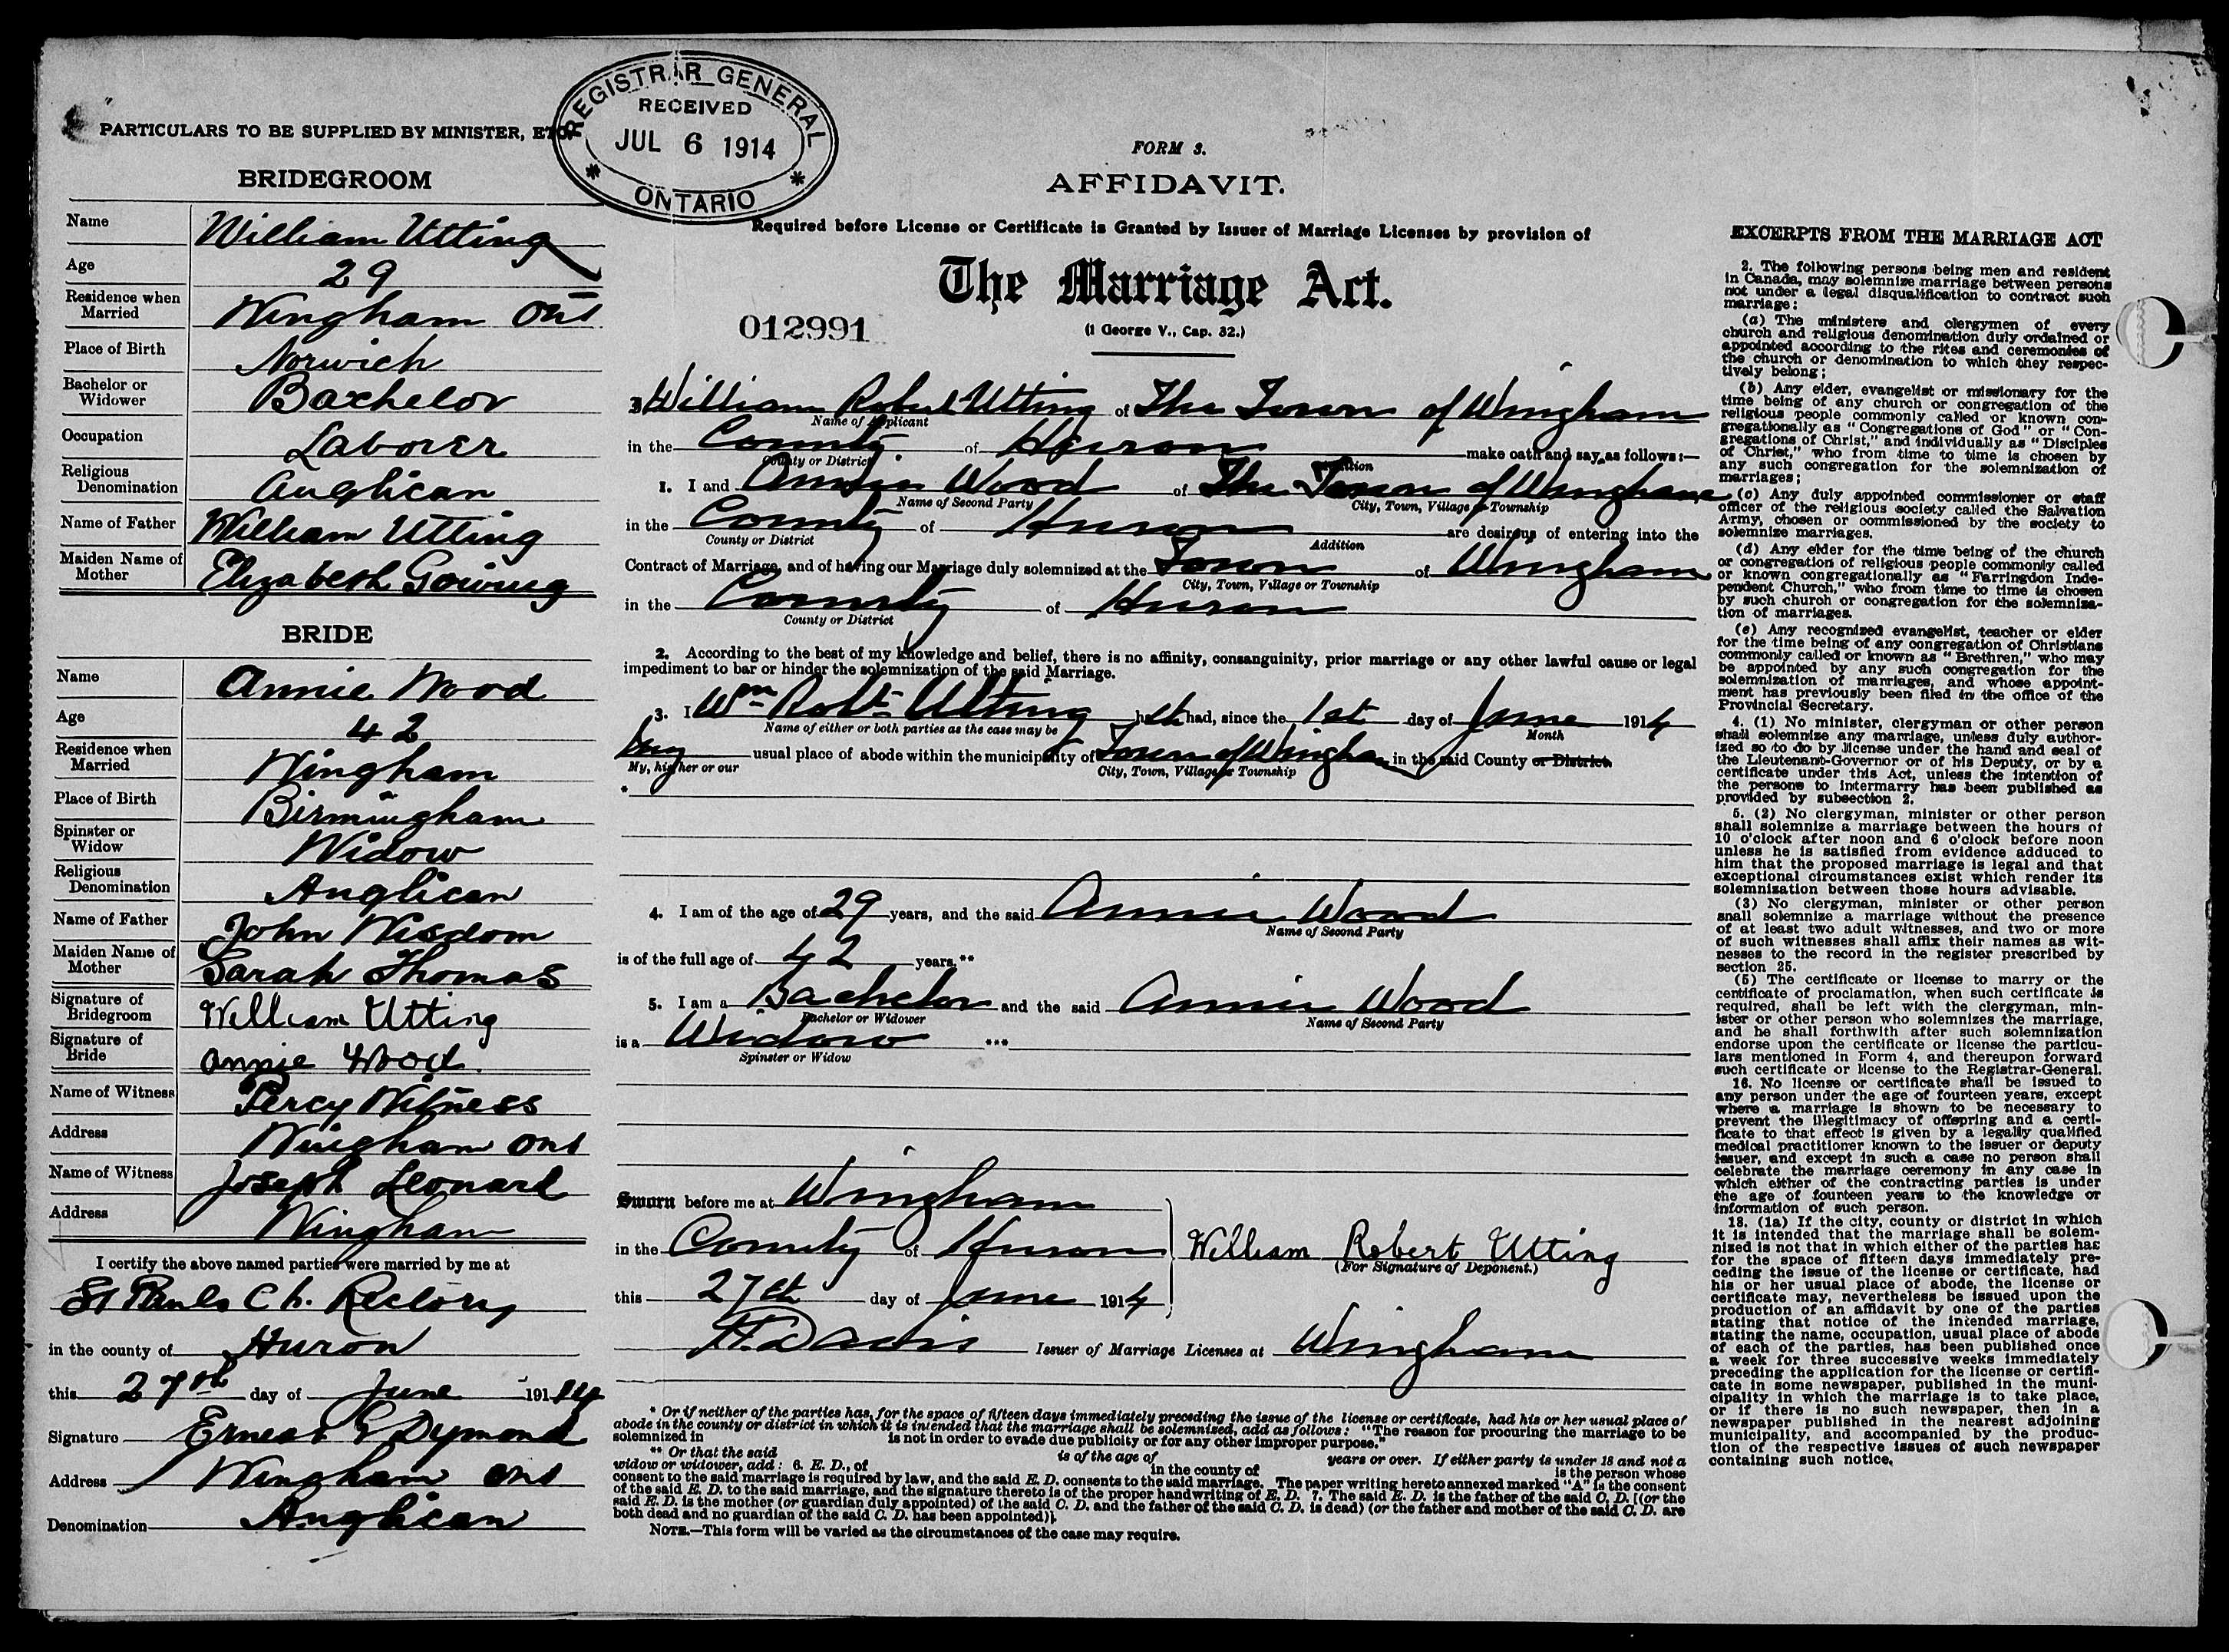 REGISTRAR GENERAL
RECEIVED
JUL 6 1914
ONTARIO
PARTICULARS TO BE SUPPLIED BY MINISTER, ETC.
BRIDEGROOM
Name William Utting
Age 29
Residence when Married Wingham Ont
Place of Birth Norwich
Bachelor or Widower Bachelor
Occupation Laborer
Religious Denomination Anglican
Name of Father William Utting
Maiden Name of Mother Elizabeth Gowing
BRIDE
Name Annie Wood
Age 42
Residence when Married Wingham
Place of Birth Birmingham
Spinster or Widow Widow
Religious Denomination Anglican
Name of Father John Wisdom
Maiden Name of Mother Sarah Thomas
Signature of Bridegroom William Utting
Signature of Bride Annie Wood.
Name of Witness Percy Witness
Address Wingham Ont
Name of Witness Joseph Leonard
Address Wingham
I certify the above named parties were married by me at
St Pauls Ch. Rectory
in the county of Huron
this 27th day of June 191 14
Signature Ernest G Dymond
Address Wingham Ont
Denomination Anglican
FORM 3.
AFFIDAVIT.
Required before License or Certificate is Granted by Issuer of Marriage Licenses by provision of
The Marriage Act.
012991
(1 George V., Cap. 32.)
I William Robert Utting of The Town of Wingham
Name of Applicant
in the County of Huron make oath and say as follows:—
County or District Addition
1. I and Annie Wood of The Town of Wingham
Name of Second Party City, Town, Village or Township
in the County of Huron are desirous of entering into the
County or District Addition
Contract of Marriage, and of having our Marriage duly solemnized at the Town of Wingham
City, Town, Village or Township
in the County of Huron
County or District
2. According to the best of my knowledge and belief, there is no affinity, consanguinity, prior marriage or any other lawful cause or legal
impediment to bar or hinder the solemnization of the said Marriage.
3. I Wm Robt Utting hath had, since the 1st day of June 1914
Name of either or both parties as the case may be Month
my usual place of abode within the municipality of Town of Wingham in the said County or District.
My, his, her or our City, Town, Village or Township
*
4. I am of the age of 29 years, and the said Annie Wood
Name of Second Party
is of the full age of 42 years.**
5. I am a Bachelor and the said Annie Wood
Bachelor or Widower Name of Second Party
is a Widow ***
Spinster or Widow
Sworn before me at Wingham
in the County of Huron William Robert Utting
(For Signature of Deponent.)
this 27th day of June 1914
Davis Issuer of Marriage Licenses at Wingham
* Or if neither of the parties has, for the space of fifteen days immediately preceding the issue of the license or certificate, had his or her usual place of
abode in the county or district in which it is intended that the marriage shall be solemnized, add as follows: "The reason for procuring the marriage to be
solemnized in is not in order to evade due publicity or for any other improper purpose."
** Or that the said is of the age of years or over. If either party is under 18 and not a
widow or widower, add: 6. E. D., of in the county of is the person whose
consent to the said marriage is required by law, and the said E. D. consents to the said marriage. The paper writing hereto annexed marked "A" is the consent
of the said E. D. to the said marriage, and the signature thereto is of the proper handwriting of E. D. 7. The said E. D. is the father of the said C. D. [(or the
said E. D. is the mother (or guardian duly appointed) of the said C. D. and the father of the said C. D. is dead) (or the father and mother of the said C. D. are
both dead and no guardian of the said C. D. has been appointed)].
NOTE.—This form will be varied as the circumstances of the case may require.
EXCERPTS FROM THE MARRIAGE ACT
2. The following persons being men and resident
in Canada, may solemnize marriage between persons
not under a legal disqualification to contract such
marriage:
(a) The ministers and clergymen of every
church and religious denomination duly ordained or
appointed according to the rites and ceremonies of
the church or denomination to which they respec-
tively belong;
(b) Any elder, evangelist or missionary for the
time being of any church or congregation of the
religious people commonly called or known con-
gregationally as "Congregations of God" or "Con-
gregations of Christ," and individually as "Disciples
of Christ," who from time to time is chosen by
any such congregation for the solemnization of
marriages;
(c) Any duly appointed commissioner or staff
officer of the religious society called the Salvation
Army, chosen or commissioned by the society to
solemnize marriages.
(d) Any elder for the time being of the church
or congregation of religious people commonly called
or known congregationally as "Farringdon Inde-
pendent Church," who from time to time is chosen
by such church or congregation for the solemniza-
tion of marriages.
(e) Any recognized evangelist, teacher or elder
for the time being of any congregation of Christians
commonly called or known as "Brethren," who may
be appointed by any such congregation for the
solemnization of marriages, and whose appoint-
ment has previously been filed in the office of the
Provincial Secretary.
4. (1) No minister, clergyman or other person
shall solemnize any marriage, unless duly author-
ized so to do by license under the hand and seal of
the Lieutenant-Governor or of his Deputy, or by a
certificate under this Act, unless the intention of
the persons to intermarry has been published as
provided by subsection 2.
5. (2) No clergyman, minister or other person
shall solemnize a marriage between the hours of
10 o'clock after noon and 6 o'clock before noon
unless he is satisfied from evidence adduced to
him that the proposed marriage is legal and that
exceptional circumstances exist which render its
solemnization between those hours advisable.
(3) No clergyman, minister or other person
shall solemnize a marriage without the presence
of at least two adult witnesses, and two or more
of such witnesses shall affix their names as wit-
nesses to the record in the register prescribed by
section 25.
(5) The certificate or license to marry or the
certificate of proclamation, when such certificate is
required, shall be left with the clergyman, min-
ister or other person who solemnizes the marriage,
and he shall forthwith after such solemnization
endorse upon the certificate or license the particu-
lars mentioned in Form 4, and thereupon forward
such certificate or license to the Registrar-General.
16. No license or certificate shall be issued to
any person under the age of fourteen years, except
where a marriage is shown to be necessary to
prevent the illegitimacy of offspring and a certi-
ficate to that effect is given by a legally qualified
medical practitioner known to the issuer or deputy
issuer, and except in such a case no person shall
celebrate the marriage ceremony in any case in
which either of the contracting parties is under
the age of fourteen years to the knowledge or
information of such person.
18. (1a) If the city, county or district in which
it is intended that the marriage shall be solem-
nized is not that in which either of the parties has
for the space of fifteen days immediately pre-
ceding the issue of the license or certificate, had
his or her usual place of abode, the license or
certificate may, nevertheless be issued upon the
production of an affidavit by one of the parties
stating that notice of the intended marriage,
stating the name, occupation, usual place of abode
of each of the parties, has been published once
a week for three successive weeks immediately
preceding the application for the license or certifi-
cate in some newspaper, published in the muni-
cipality in which the marriage is to take place,
or if there is no such newspaper, then in a
newspaper published in the nearest adjoining
municipality, and accompanied by the produc-
tion of the respective issues of such newspaper
containing such notice.